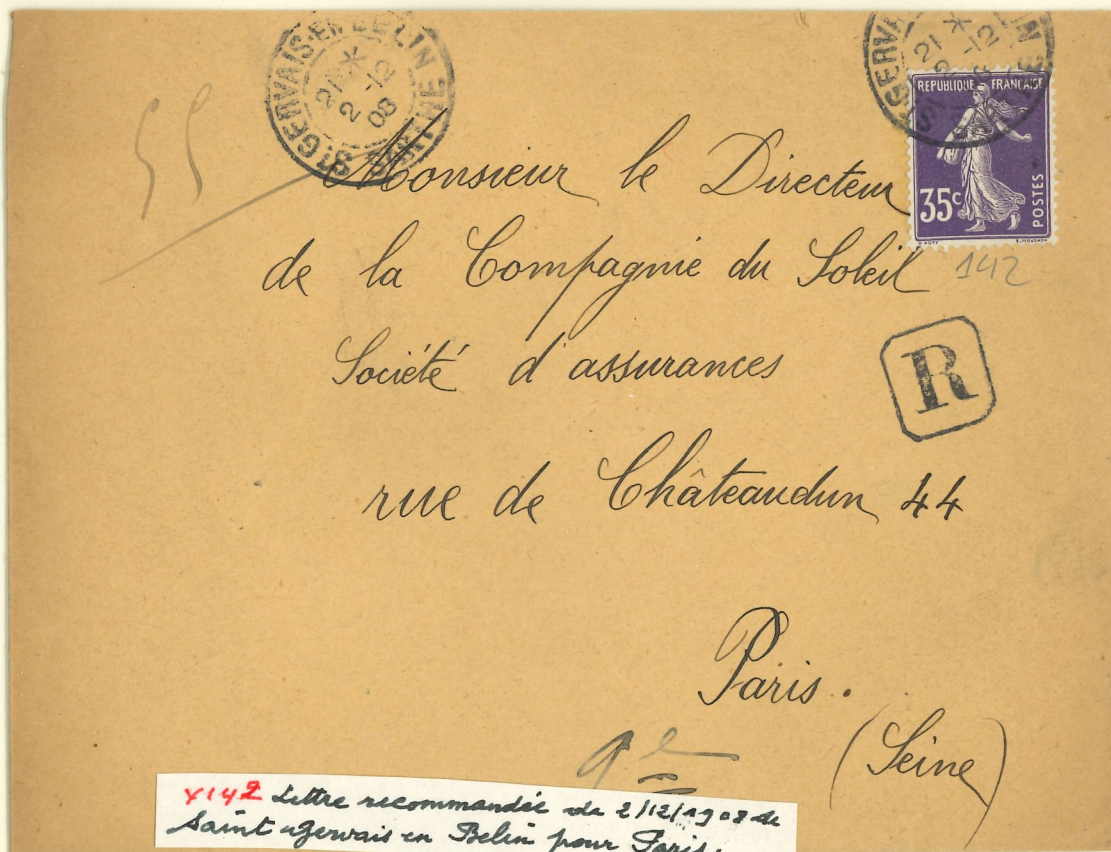 ST GERVAIS-EN-BELIN SARTHE
21 *
2 -12
08
RÉPUBLIQUE FRANÇAISE
35c
POSTES
55
Monsieur le Directeur
de la Compagnie du Soleil
142
Société d'assurances
R
rue de Châteaudun 44
Paris.
(Seine)
9e
Y142 Lettre recommandée du 2/12/1908 de
Saint Gervais en Belin pour Paris.